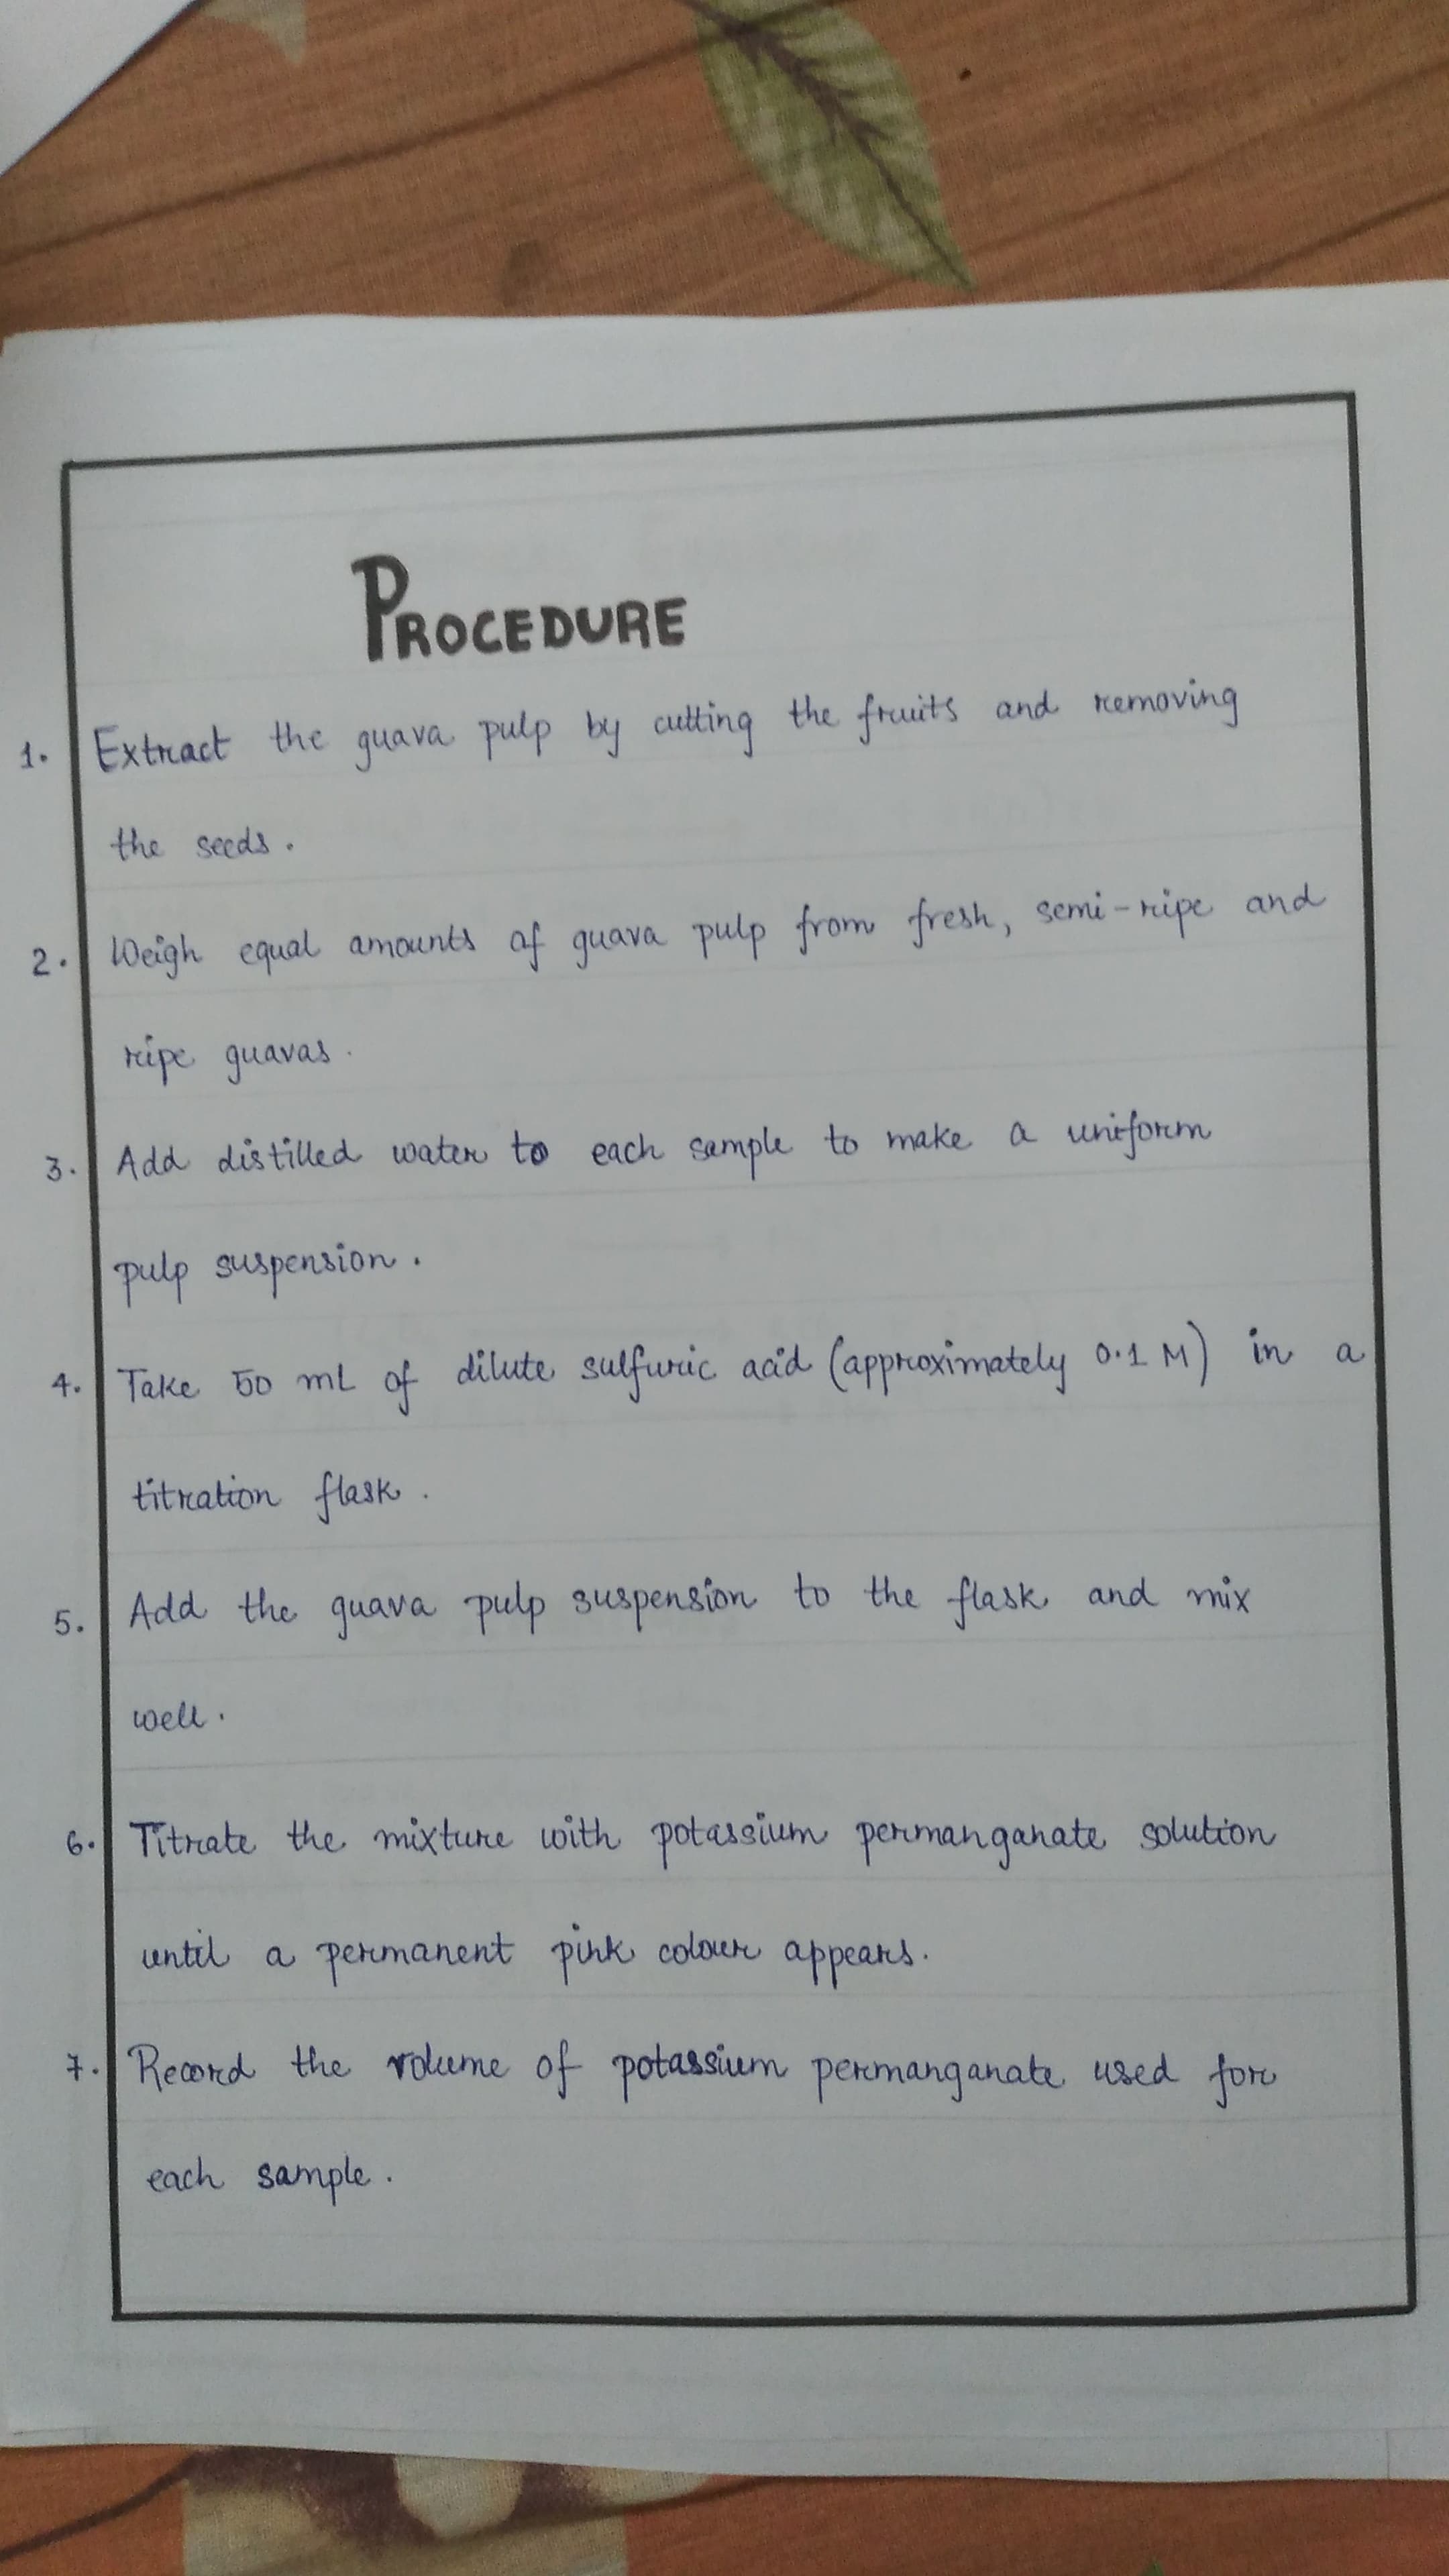 PROCEDURE
1. Extract the guava pulp by cutting the fruits and removing
the seeds.
2. Weigh equal amounts of guava pulp from fresh, semi-ripe and
ripe guavas.
3. Add distilled water to each sample to make a uniform
pulp suspension.
4. Take 50 mL of dilute sulfuric acid (approximately 0.1 M) in a
titration flask.
5. Add the guava pulp suspension to the flask and mix
well.
6. Titrate the mixture with potassium permanganate solution
until a permanent pink colour appears.
7. Record the volume of potassium permanganate used for
each sample.